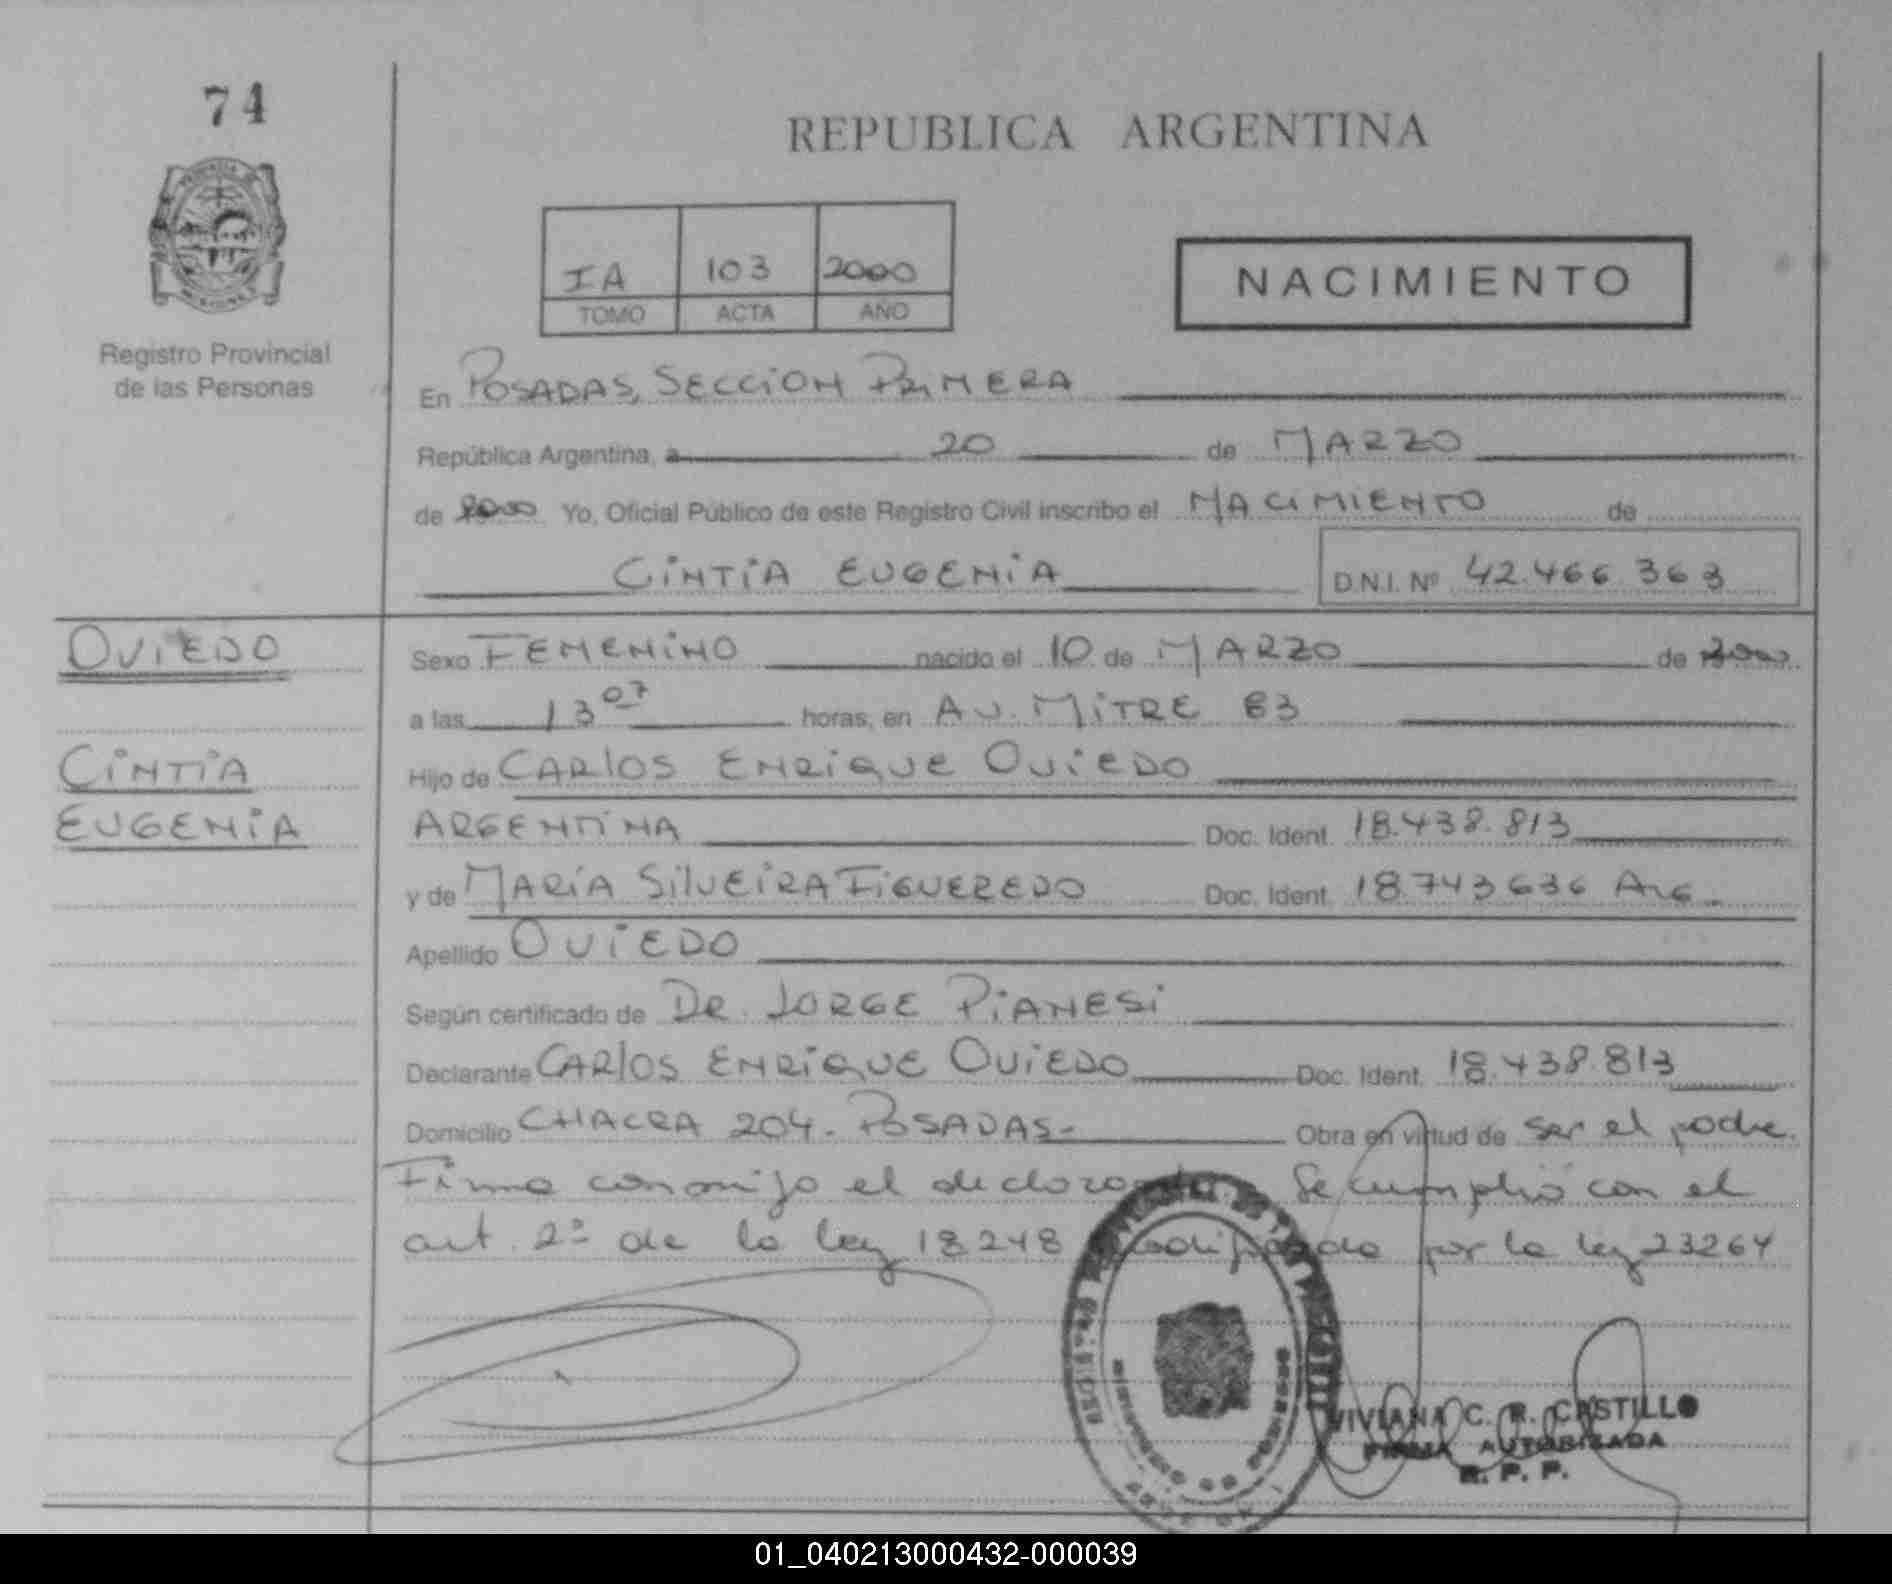 74
REPUBLICA ARGENTINA
IA 103 2000
TOMO ACTA AÑO
NACIMIENTO
Registro Provincial
de las Personas
En POSADAS, SECCION PRIMERA
República Argentina, a 20 de MARZO
de 2000 Yo, Oficial Público de este Registro Civil inscribo el NACIMIENTO de
CINTIA EUGENIA D.N.I. Nº 42.466.363
OVIEDO
Sexo FEMENINO nacido el 10 de MARZO de 2000
a las 13 07 horas, en AV. MITRE 63
CINTIA
Hijo de CARLOS ENRIQUE OVIEDO
EUGENIA
ARGENTINA Doc. Ident. 18.438.813
y de MARÍA SILVEIRA FIGUEREDO Doc. Ident. 18.743636 ARG.
Apellido OVIEDO
Según certificado de DR. JORGE PIANESI
Declarante CARLOS ENRIQUE OVIEDO Doc. Ident. 18.438.813
Domicilio CHACRA 204. POSADAS- Obra en virtud de ser el padre.
Firma conmigo el declarante. Se cumplió con el
art. 2º de la ley 18248 modificada por la ley 23264
VIVIANA C. R. CASTILLO
FIRMA AUTORIZADA
R. P. P.
01_040213000432-000039